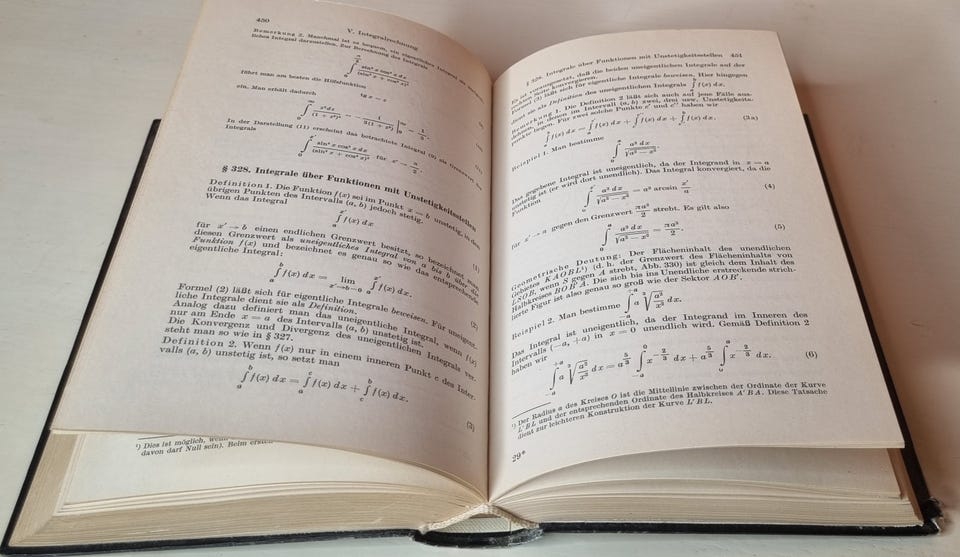 450
V. Integralrechnung
Bemerkung 2. Manchmal ist es bequem, ein eigentliches Integral als
liches Integral darzustellen. Zur Berechnung des Integrals
führt man am besten die Hilfsfunktion
tg x = z
ein. Man erhält dadurch
In der Darstellung (11) erscheint das betrachtete Integral (9) als Grenzwert des
Integrals
§ 328. Integrale über Funktionen mit Unstetigkeitsstellen
Definition 1. Die Funktion f(x) sei im Punkt x = b unstetig, in den
übrigen Punkten des Intervalls (a, b) jedoch stetig.
Wenn das Integral
∫ₐˣ′ f(x) dx
(1)
für x′ → b einen endlichen Grenzwert besitzt, so bezeichnet man
diesen Grenzwert als uneigentliches Integral von a bis b über die
Funktion f(x) und bezeichnet es genau so wie das entsprechende
eigentliche Integral:
∫ₐᵇ f(x) dx = lim x′→b−0 ∫ₐˣ′ f(x) dx.
(2)
Formel (2) läßt sich für eigentliche Integrale beweisen. Für uneigent-
liche Integrale dient sie als Definition.
Analog dazu definiert man das uneigentliche Integral, wenn f(x)
nur am Ende x = a des Intervalls (a, b) unstetig ist.
Die Konvergenz und Divergenz des uneigentlichen Integrals ver-
steht man so wie in § 327.
Definition 2. Wenn f(x) nur in einem inneren Punkt c des Inter-
valls (a, b) unstetig ist, so setzt man
∫ₐᵇ f(x) dx = ∫ₐᶜ f(x) dx + ∫_c^b f(x) dx.
(3)
¹) Dies ist möglich, wenn
davon darf Null sein). Beim ersten
§ 328. Integrale über Funktionen mit Unstetigkeitsstellen 451
Es ist vorausgesetzt, daß die beiden uneigentlichen Integrale auf der
rechten Seite konvergieren.
Formel (3) läßt sich für eigentliche Integrale beweisen. Hier hingegen
dient sie als Definition des uneigentlichen Integrals ∫ₐᵇ f(x) dx.
Bemerkung 1. Die Definition 2 läßt sich auch auf jene Fälle aus-
dehnen, in denen im Intervall (a, b) zwei, drei usw. Unstetigkeits-
punkte liegen. Für zwei solche Punkte c′ und c″ haben wir
∫ₐᵇ f(x) dx = ∫ₐᶜ′ f(x) dx + ∫_c′^c″ f(x) dx + ∫_c″^b f(x) dx. (3a)
Beispiel 1. Man bestimme
∫₀ᵃ a² dx / √(a² − x²).
Das gegebene Integral ist uneigentlich, da der Integrand in x = a
unstetig ist (er wird dort unendlich). Das Integral konvergiert, da die
Funktion
∫₀ˣ′ a² dx / √(a² − x²) = a² arcsin x′/a (4)
für x′ → a gegen den Grenzwert πa²/2 strebt. Es gilt also
∫₀ᵃ a² dx / √(a² − x²) = πa²/2. (5)
Geometrische Deutung: Der Flächeninhalt des unendlichen
Gebietes KAOBL¹) (d. h. der Grenzwert des Flächeninhalts von
wenn S gegen A strebt, Abb. 330) ist gleich dem Inhalt des
Halbkreises BOB′A. Die sich bis ins Unendliche erstreckende strich-
lierte Figur ist also genau so groß wie der Sektor AOB′.
Beispiel 2. Man bestimme ∫₋ₐ⁺ᵃ ∛(a⁵/x²) dx.
Das Integral ist uneigentlich, da der Integrand im Inneren des
Intervalls (−a, +a) in x = 0 unendlich wird. Gemäß Definition 2
haben wir
(6)
¹) Der Radius a des Kreises O ist die Mittellinie zwischen der Ordinate der Kurve
L′BL und der entsprechenden Ordinate des Halbkreises A′BA. Diese Tatsache
dient zur leichteren Konstruktion der Kurve L′BL.
29*